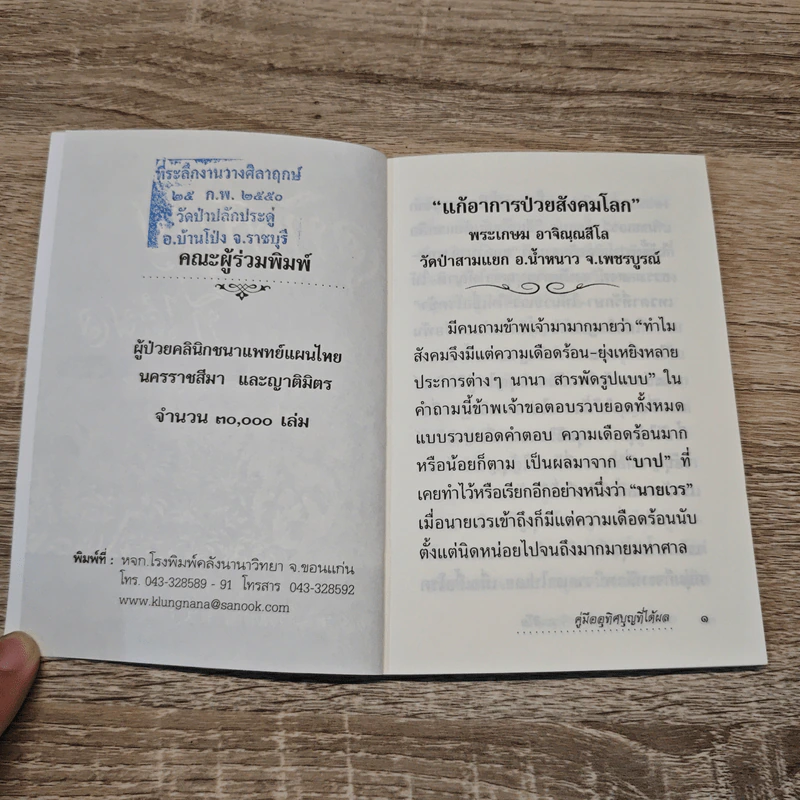 ที่ระลึกงานวางศิลาฤกษ์
๒๕ ก.พ. ๒๕๕๐
วัดป่าปลักประดู่
อ.บ้านโป่ง จ.ราชบุรี
คณะผู้ร่วมพิมพ์
ผู้ป่วยคลินิกชนาแพทย์แผนไทย
นครราชสีมา และญาติมิตร
จำนวน ๓๐,๐๐๐ เล่ม
พิมพ์ที่ : หจก.โรงพิมพ์คลังนานาวิทยา จ.ขอนแก่น
โทร. 043-328589 - 91 โทรสาร 043-328592
www.klungnana@sanook.com
“แก้อาการป่วยสังคมโลก”
พระเกษม อาจิณฺณสีโล
วัดป่าสามแยก อ.น้ำหนาว จ.เพชรบูรณ์
มีคนถามข้าพเจ้ามามากมายว่า “ทำไม
สังคมจึงมีแต่ความเดือดร้อน-ยุ่งเหยิงหลาย
ประการต่างๆ นานา สารพัดรูปแบบ” ใน
คำถามนี้ข้าพเจ้าขอตอบรวบยอดทั้งหมด
แบบรวบยอดคำตอบ ความเดือดร้อนมาก
หรือน้อยก็ตาม เป็นผลมาจาก “บาป” ที่
เคยทำไว้หรือเรียกอีกอย่างหนึ่งว่า “นายเวร”
เมื่อนายเวรเข้าถึงก็มีแต่ความเดือดร้อนนับ
ตั้งแต่นิดหน่อยไปจนถึงมากมายมหาศาล
คู่มืออุทิศบุญที่ได้ผล ๑